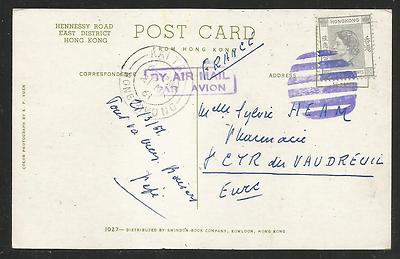 HENNESSY ROAD
EAST DISTRICT
HONG KONG
POST CARD
FROM HONG KONG
FRANCE
CORRESPONDENCE
ADDRESS
HONGKONG
BY AIR MAIL
PAR AVION
HONG KONG
COLOR PHOTOGRAPH BY
Tout va bien, baisers
papi
Melle Sylvie HEAM
Pharmacie
St CYR du VAUDREUIL
Eure
1027—DISTRIBUTED BY SWINDON-BOOK COMPANY, KOWLOON, HONG KONG